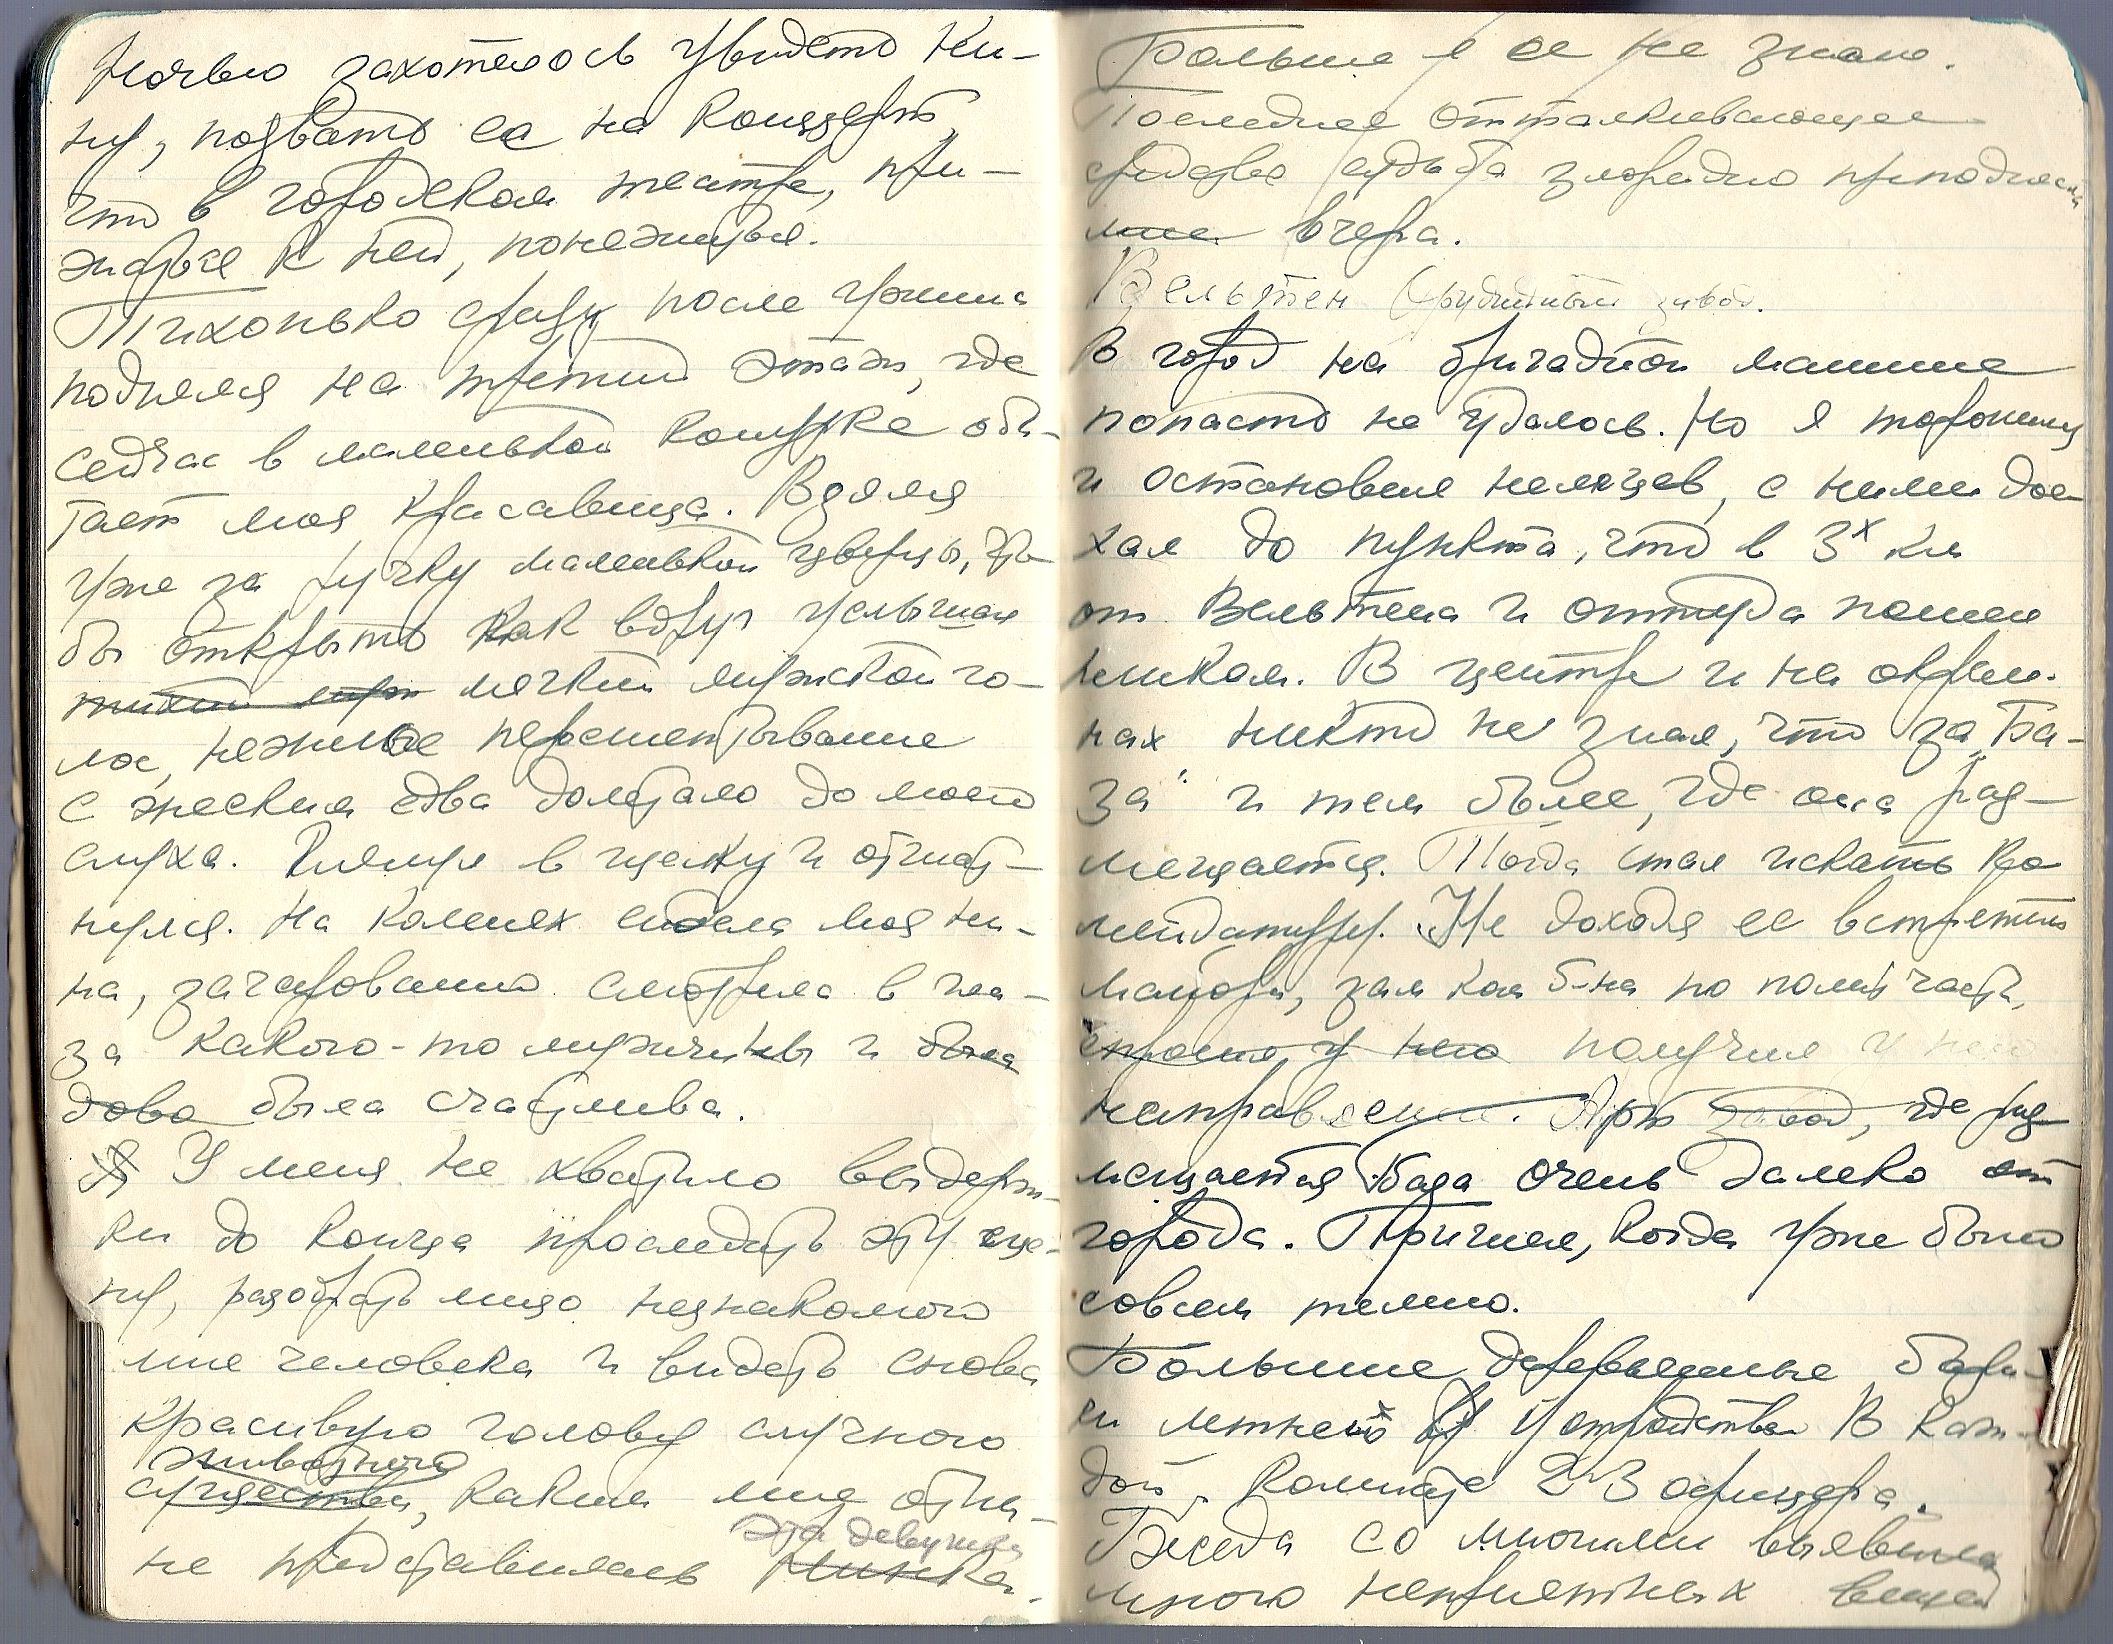 Ночью захотелось увидеть Ни-
ну, позвать ее на концерт,
что в городском театре, при-
жаться к ней, понежиться.
Тихонько сразу после ужина
поднялся на третий этаж, где
сейчас в маленькой конурке оби-
тает моя красавица. Взялся
уже за ручку маленькой дверцы, что-
бы открыть как вдруг услышал
тихий муж мягкий мужской го-
лос, нежное перешептывание
с женским едва долетало до моего
слуха. Глянул в щелку и отшат-
нулся. На коленях сидела моя Ни-
на, зачарованно смотрела в гла-
за какого-то мужчины и была
дово была счастлива.
Я У меня не хватило выдерж-
ки до конца проследить эту сце-
ну, разобрать лицо незнакомого
мне человека и видеть снова
красивую голову скучного
животного
существа, каким мне отны-
эта девушка
не представилась Нинка.
Больше я ее не знаю.
Последнее отталкивающее
средство судьба злорадно преподнесла
мне вчера.
Вельтен. Орудийный завод.
В город на бригадной машине
попасть не удалось. Но я торопился
и остановил немцев, с ними дое-
хал до пункта, что в 3х км
от Вельтена и оттуда пошел
пешком. В центре и на окраи-
нах никто не знал, что за „Ба-
за" и тем более, где она раз-
мещается. Тогда стал искать ко-
мендатуру. Не доходя ее встретил
майора, зам ком б-на по полит части,
спросил у него получил у него
направление. Арт завод, где раз-
мещается База очень далеко от
города. Пришел, когда уже было
совсем темно.
Большие деревянные бара-
ки летнего устройства. В каж-
дой комнате 2-3 офицера.
Беседа со многими выявила
много неприятных вещей